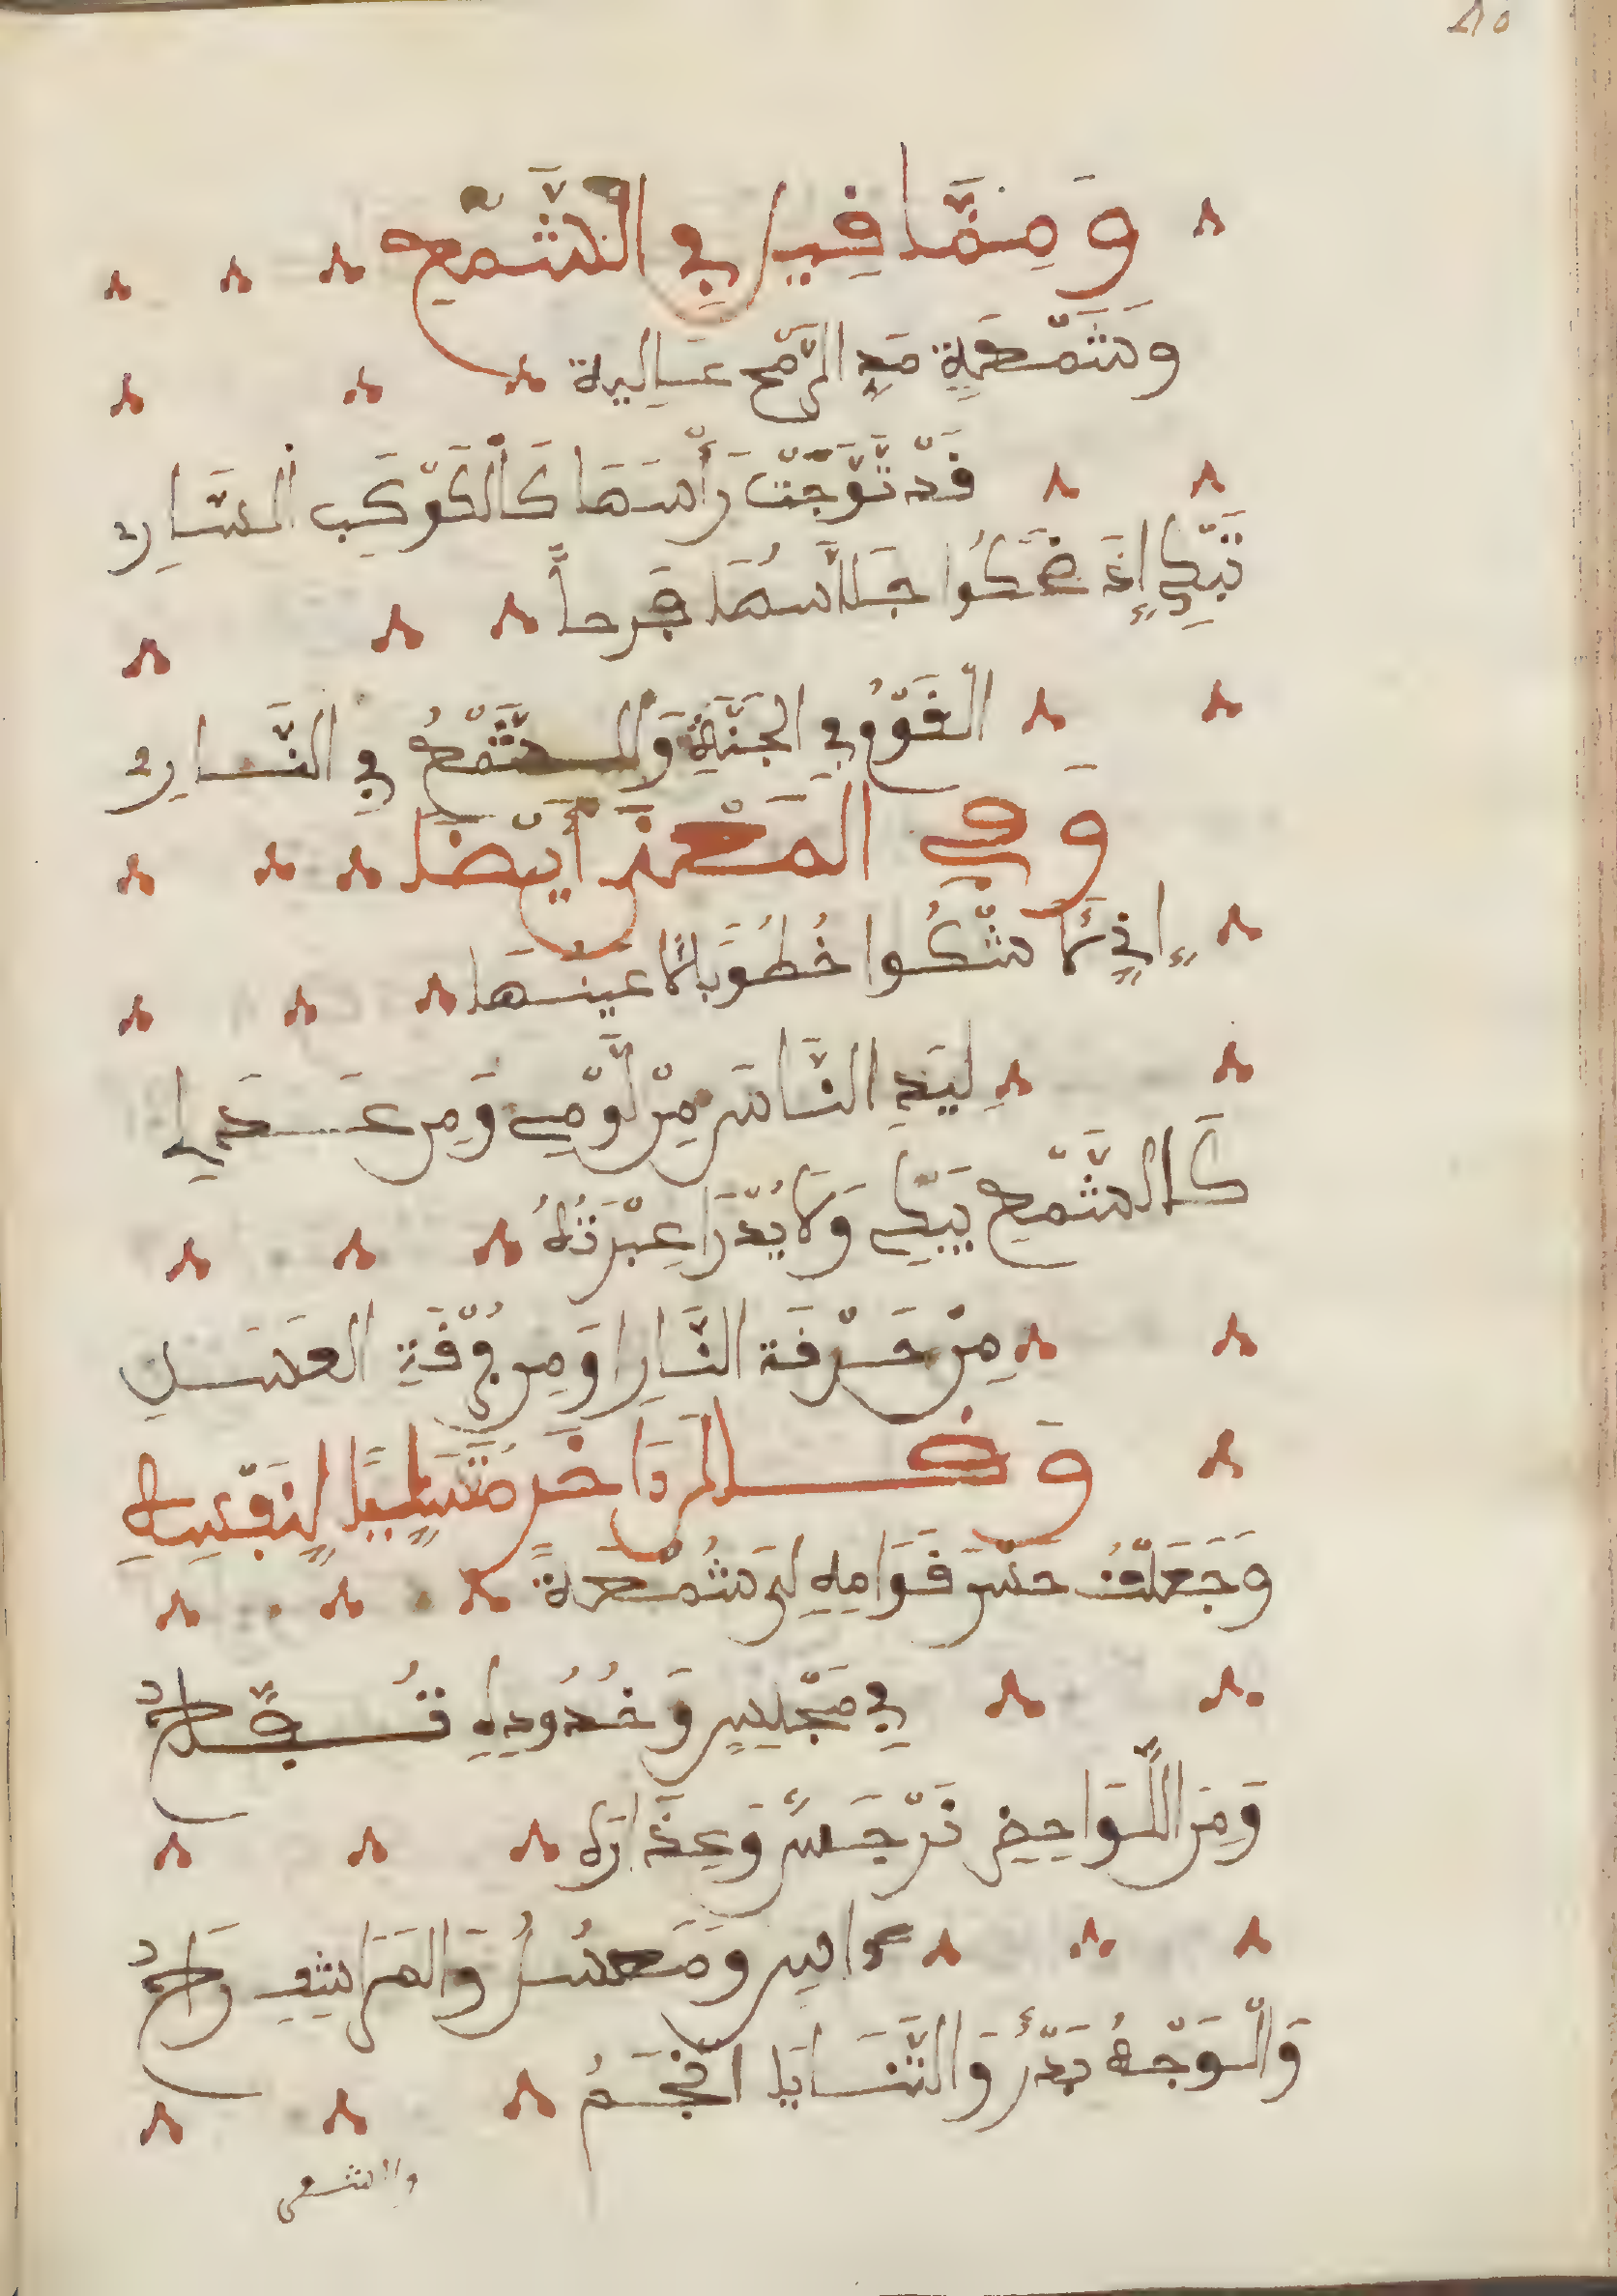 ٨٥
وَمِمَّا قِيلَ فِي الشَّمْعِ
وَشَمْعَةٍ مَدِ الرَّمْحِ عَالِية
قَدْ تَوَّجَتْ رَأْسَهَا كَالْكَوْكَبِ السَّارِ
تَبْكِي إِذَ ضَحَكُوا جَلاَّسُهَا فَرحاً
الْقَوْمُ فِي الجَنَّةِ وَالشَّمْعُ فِي النَّارِ
وَفِي الْمَعْنَى أَيْضَا
إنِّي لَمَّا شْكُوا خُطُوبًا لاَ عينهَا
لِيَدِ النَّاسَ مِنْ لَوْمِي وَمِن عَدَلِي
كَالشَّمْعِ يَبْكِي وَلاَ يُدْرَا عِبْرَتُهُ
مِنْ حَرْقَة النَّارِ اوَ مِن فُرْقَةِ العَسَلِ
وَقَالَ ءَاخَر مُسَلِّيًا لِنَفْسِهِ
وَجَعَلْتُ حسْنَ قَوَامِهِ لِي شَمْعَةً
فِي مَجْلِسٍ وَخُدُودِهِ تُفَّاحُ
وَمِنَ اللَّوَاحِضِ نَرْجَسٌ وَعِذَارَهُ
ءَاسٍ وَمَعسُلُ وَالمَرَاشِفِ رَاحُ
وَالْوَجْهُ بَدْرُ وَالثَّنَايَا انْجُمُ
والشعر